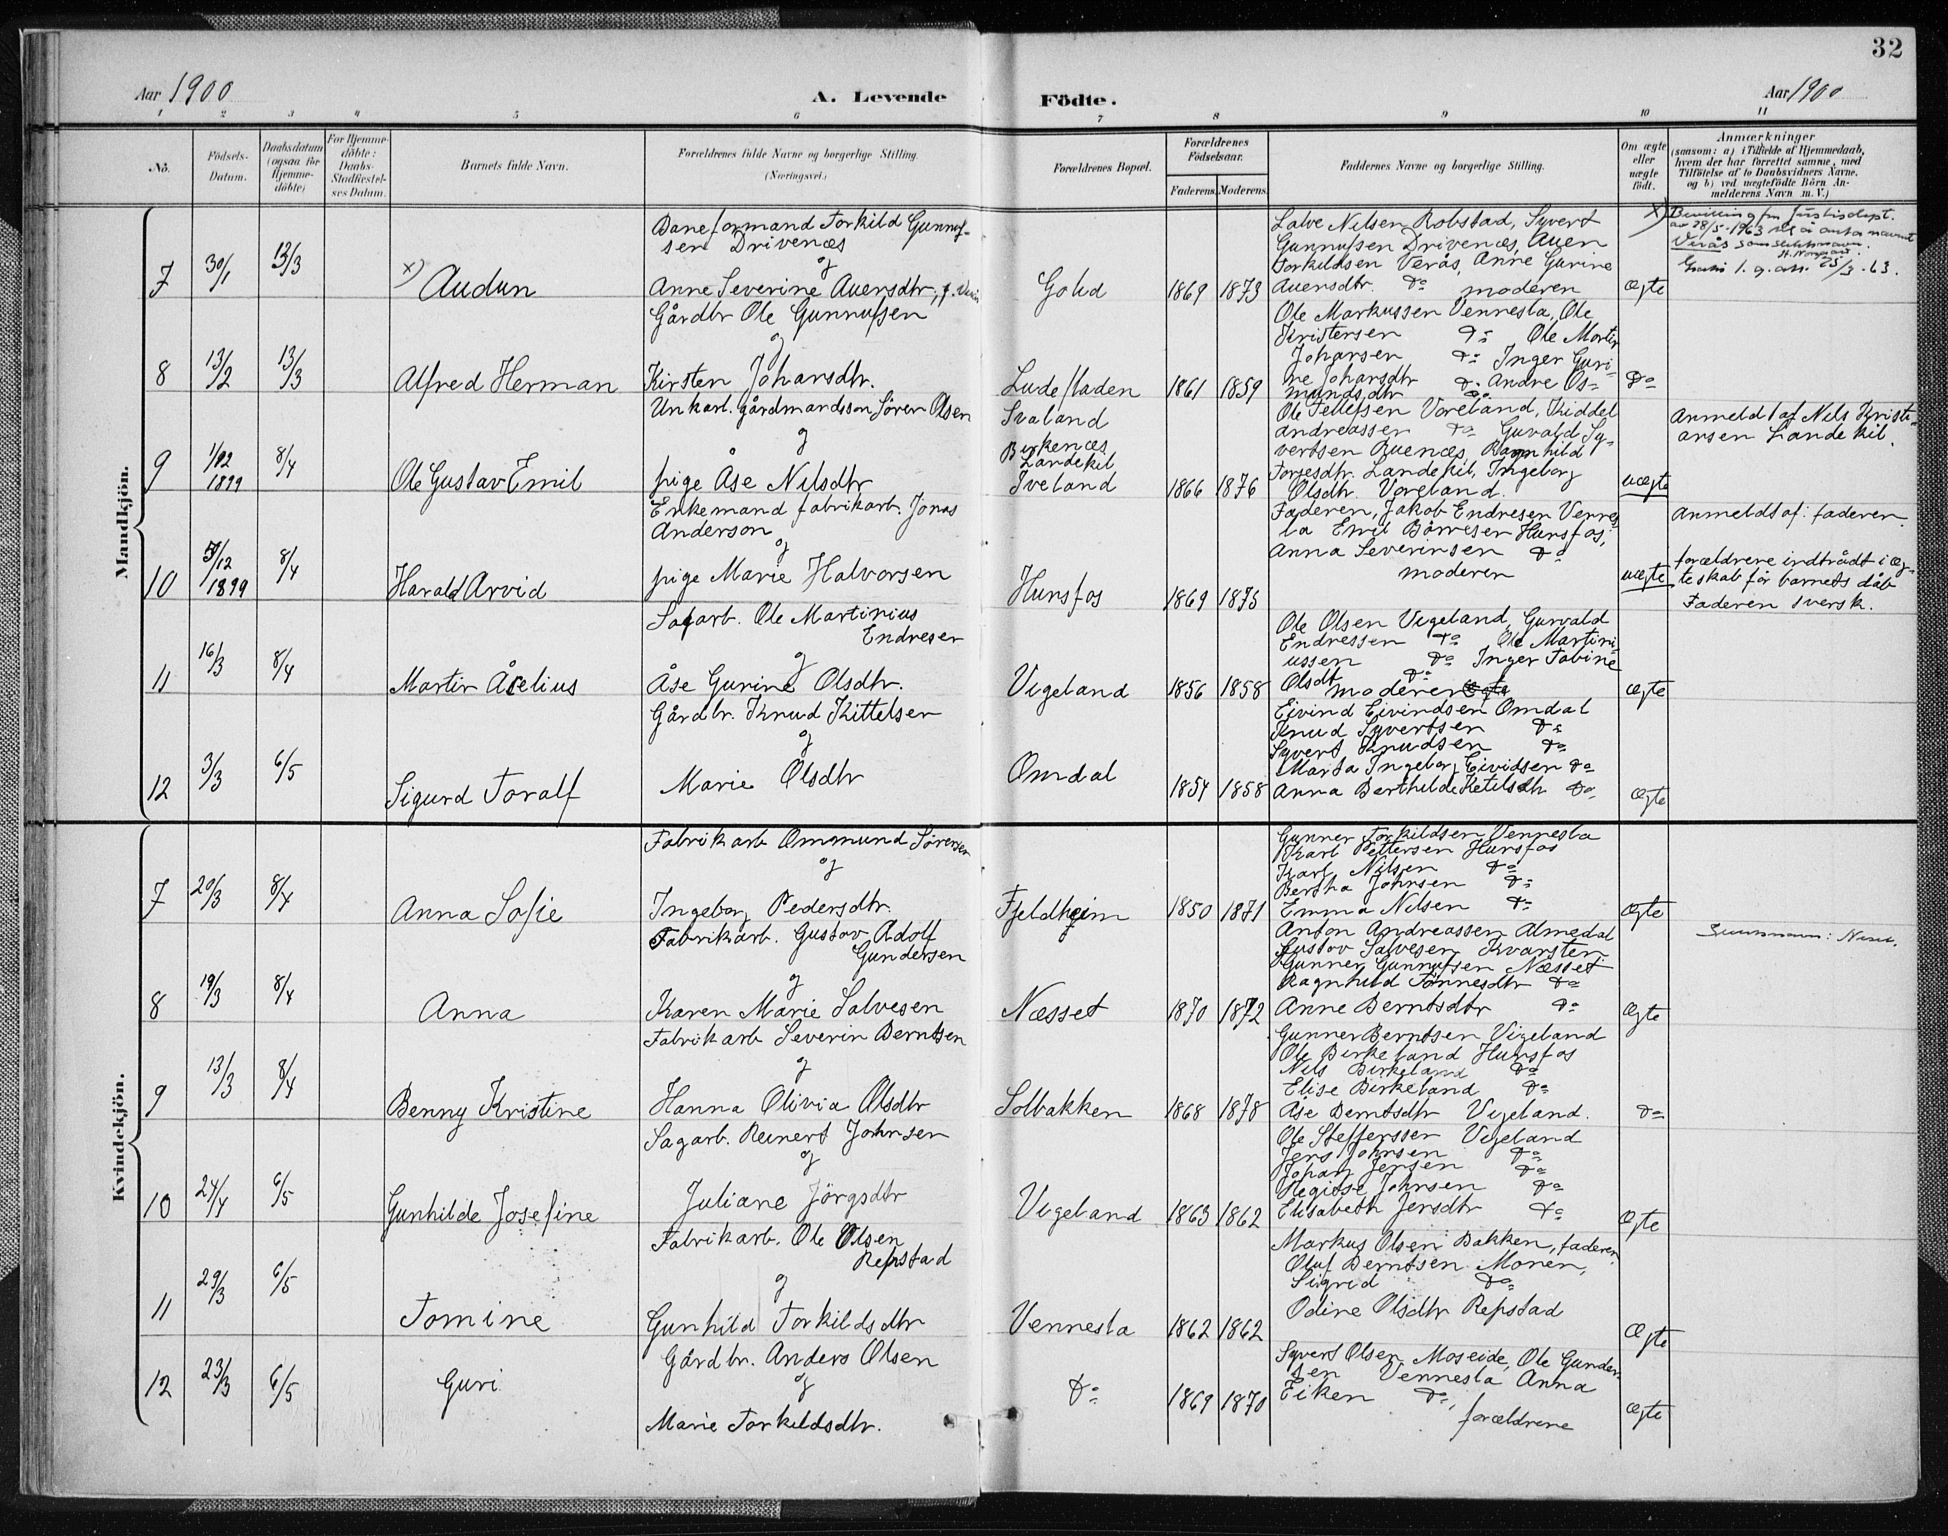 32
Aar 1900
A. Levende Födte.
Aar 1900
1 2 3 4 5 6 7 8 9 10 11
No.
Födsels-Datum.
Daabsdatum (ogsaa for Hjemme-döbte)
For Hjemme-döbte: Daabs-Stadfæstel-ses Datum.
Barnets fulde Navn.
Forældrenes fulde Navne og borgerlige Stilling.
(Næringsvei.)
Forældrenes Bopæl.
Forældrenes Födselsaar.
Faderens. Moderens.
Faddernes Navne og borgerlige Stilling.
Om ægte eller uægte födt.
Anmærkninger
(saasom: a) i Tilfælde af Hjemmedaab,
hvem der har forrettet samme, med
Tilföielse af to Daabsvidners Navne,
og b) ved uægtefödte Börn An-
melderens Navn m. V.)
Mandkjön.
7 30/1 13/3 x) Audun
Baneformand Torkild Gunnuf-
sen Drivenæs
og
Anne Severine Auensdtr,
Golid 1869 1873
Salve Nilsen Robstad, Syvert
Gunnufsen Drivenæs, Auen
Torkildsen Verås, Anne Gurine
Auensdtr. Do moderen
Ægte
x) Bevilling fra Justisdept.
av 28/5-1963 til å anta navnet
Verås som slektsnavn.
8 13/2 13/3 Alfred Herman
Gårdbr Ole Gunnufsen
og
Kirsten Johansdtr.
1861 1859
Ole Markussen Vennesla, Ole
Kristensen Do Ole Martin
Johansen Do Inger Guri-
ne Johansdtr Do Andre Os-
mundsdtr Do
Do
9 1/12 1899 8/4 Ole Gustav Emil
Unkarl. gårdmandssøn Søren Olsen
og
pige Åse Nilsdtr
Svaland
Birkenæs
Landekil
Iveland
1866 1876
Ole Tellefsen Voreland, Kiddel
Andreassen Do Guvald Sy-
vertsen Ruenæs, Ragnhild
Torjesdtr. Landekil, Ingeborg
Olsdtr. Voreland.
uægte
Anmeldt af Nils Kristi-
ansen Landekil.
10 5/12 1899 8/4 Harald Arvid
Enkemand fabrikarb. Jonas
Anderson
og
pige Marie Halvorsen
Hunsfos 1869 1875
Faderen, Jakob Endresen Vennes-
la Emil Børresen Hunsfos,
Anna Severinsen Do
moderen
uægte
Anmeldt af: faderen.
forældrene indtrådt i æg-
teskab før barnets dåb
Faderen svensk.
11 16/3 8/4 Martin Åselius
Sagarb. Ole Martinius
Endresen
og
Åse Gurine Olsdtr.
Vigeland 1856 1858
Ole Olsen Vigeland, Gunvald
Endressen Do Ole Martini-
ussen Do Inger Tobine
Olsdt. Do
moderen
Ægte
12 3/3 6/5 Sigurd Toralf
Gårdbr. Knud Kittelsen
og
Marie Olsdtr
Omdal 1854 1858
Eivind Eivindsen Omdal
Knud Syvertsen Do
Syvert Knudsen Do
Marta Ingeborg Eividsen Do
Anna Berthilde Ketilsdtr Do
Ægte
Kvindekjön.
7 20/3 8/4 Anna Sofie
Fabrikarb Ommund Sørensen
og
Ingeborg Pedersdtr.
Fjeldheim 1850 1871
Gunner Torkildsen Vennesla
Karl Pettersen Hunsfos
Karl Nilsen Do
Bertha Johnsen Do
Emma Nilsen Do
Ægte
8 19/3 8/4 Anna
Fabrikarb. Gustav Adolf
Gundersen
og
Karen Marie Salvesen
Næsset 1870 1872
Anton Andreassen Almedal
Gustav Salvesen Kvarsten
Gunner Gunnufsen Næsset
Ragnhild Tønnesdtr Do
Anne Berntsdtr Do
Ægte
9 13/3 8/4 Benny Kristine
Fabrikarb Severin Berntsen
og
Hanna Olivia Olsdtr
Solbakken 1868 1878
Gunner Berntsen Vigeland
Ole Birkeland Hunsfos
Nils Birkeland Do
Elise Birkeland Do
Åse Berntsdtr Vigeland.
Do
10 24/4 6/5 Gunhilde Josefine
Sagarb. Reinert Johnsen
og
Juliane Jörgsdtr
Vigeland 1863 1862
Ole Steffenssen Vigeland
Jens Johnsen Do
Johan Jensen Do
Johnsen Do
Elisabeth Jensdtr Do
Ægte
11 29/3 6/5 Tomine
Fabrikarb. Ole Olsen
Repstad
og
Gunhild Torkildsdtr
Vennesla 1862 1862
Markus Olsen Bakken, faderen,
Oluf Berntsen Monen,
Sigrid Do
Odine Olsdtr Repstad
Ægte
12 23/3 6/5 Guri
Gårdbr. Anders Olsen
og
Marie Torkildsdtr.
Do 1869 1870
Syvert Olsen Moseide, Ole Gunder-
sen Vennesla Anna
Eiken Do,
forældrene
Ægte